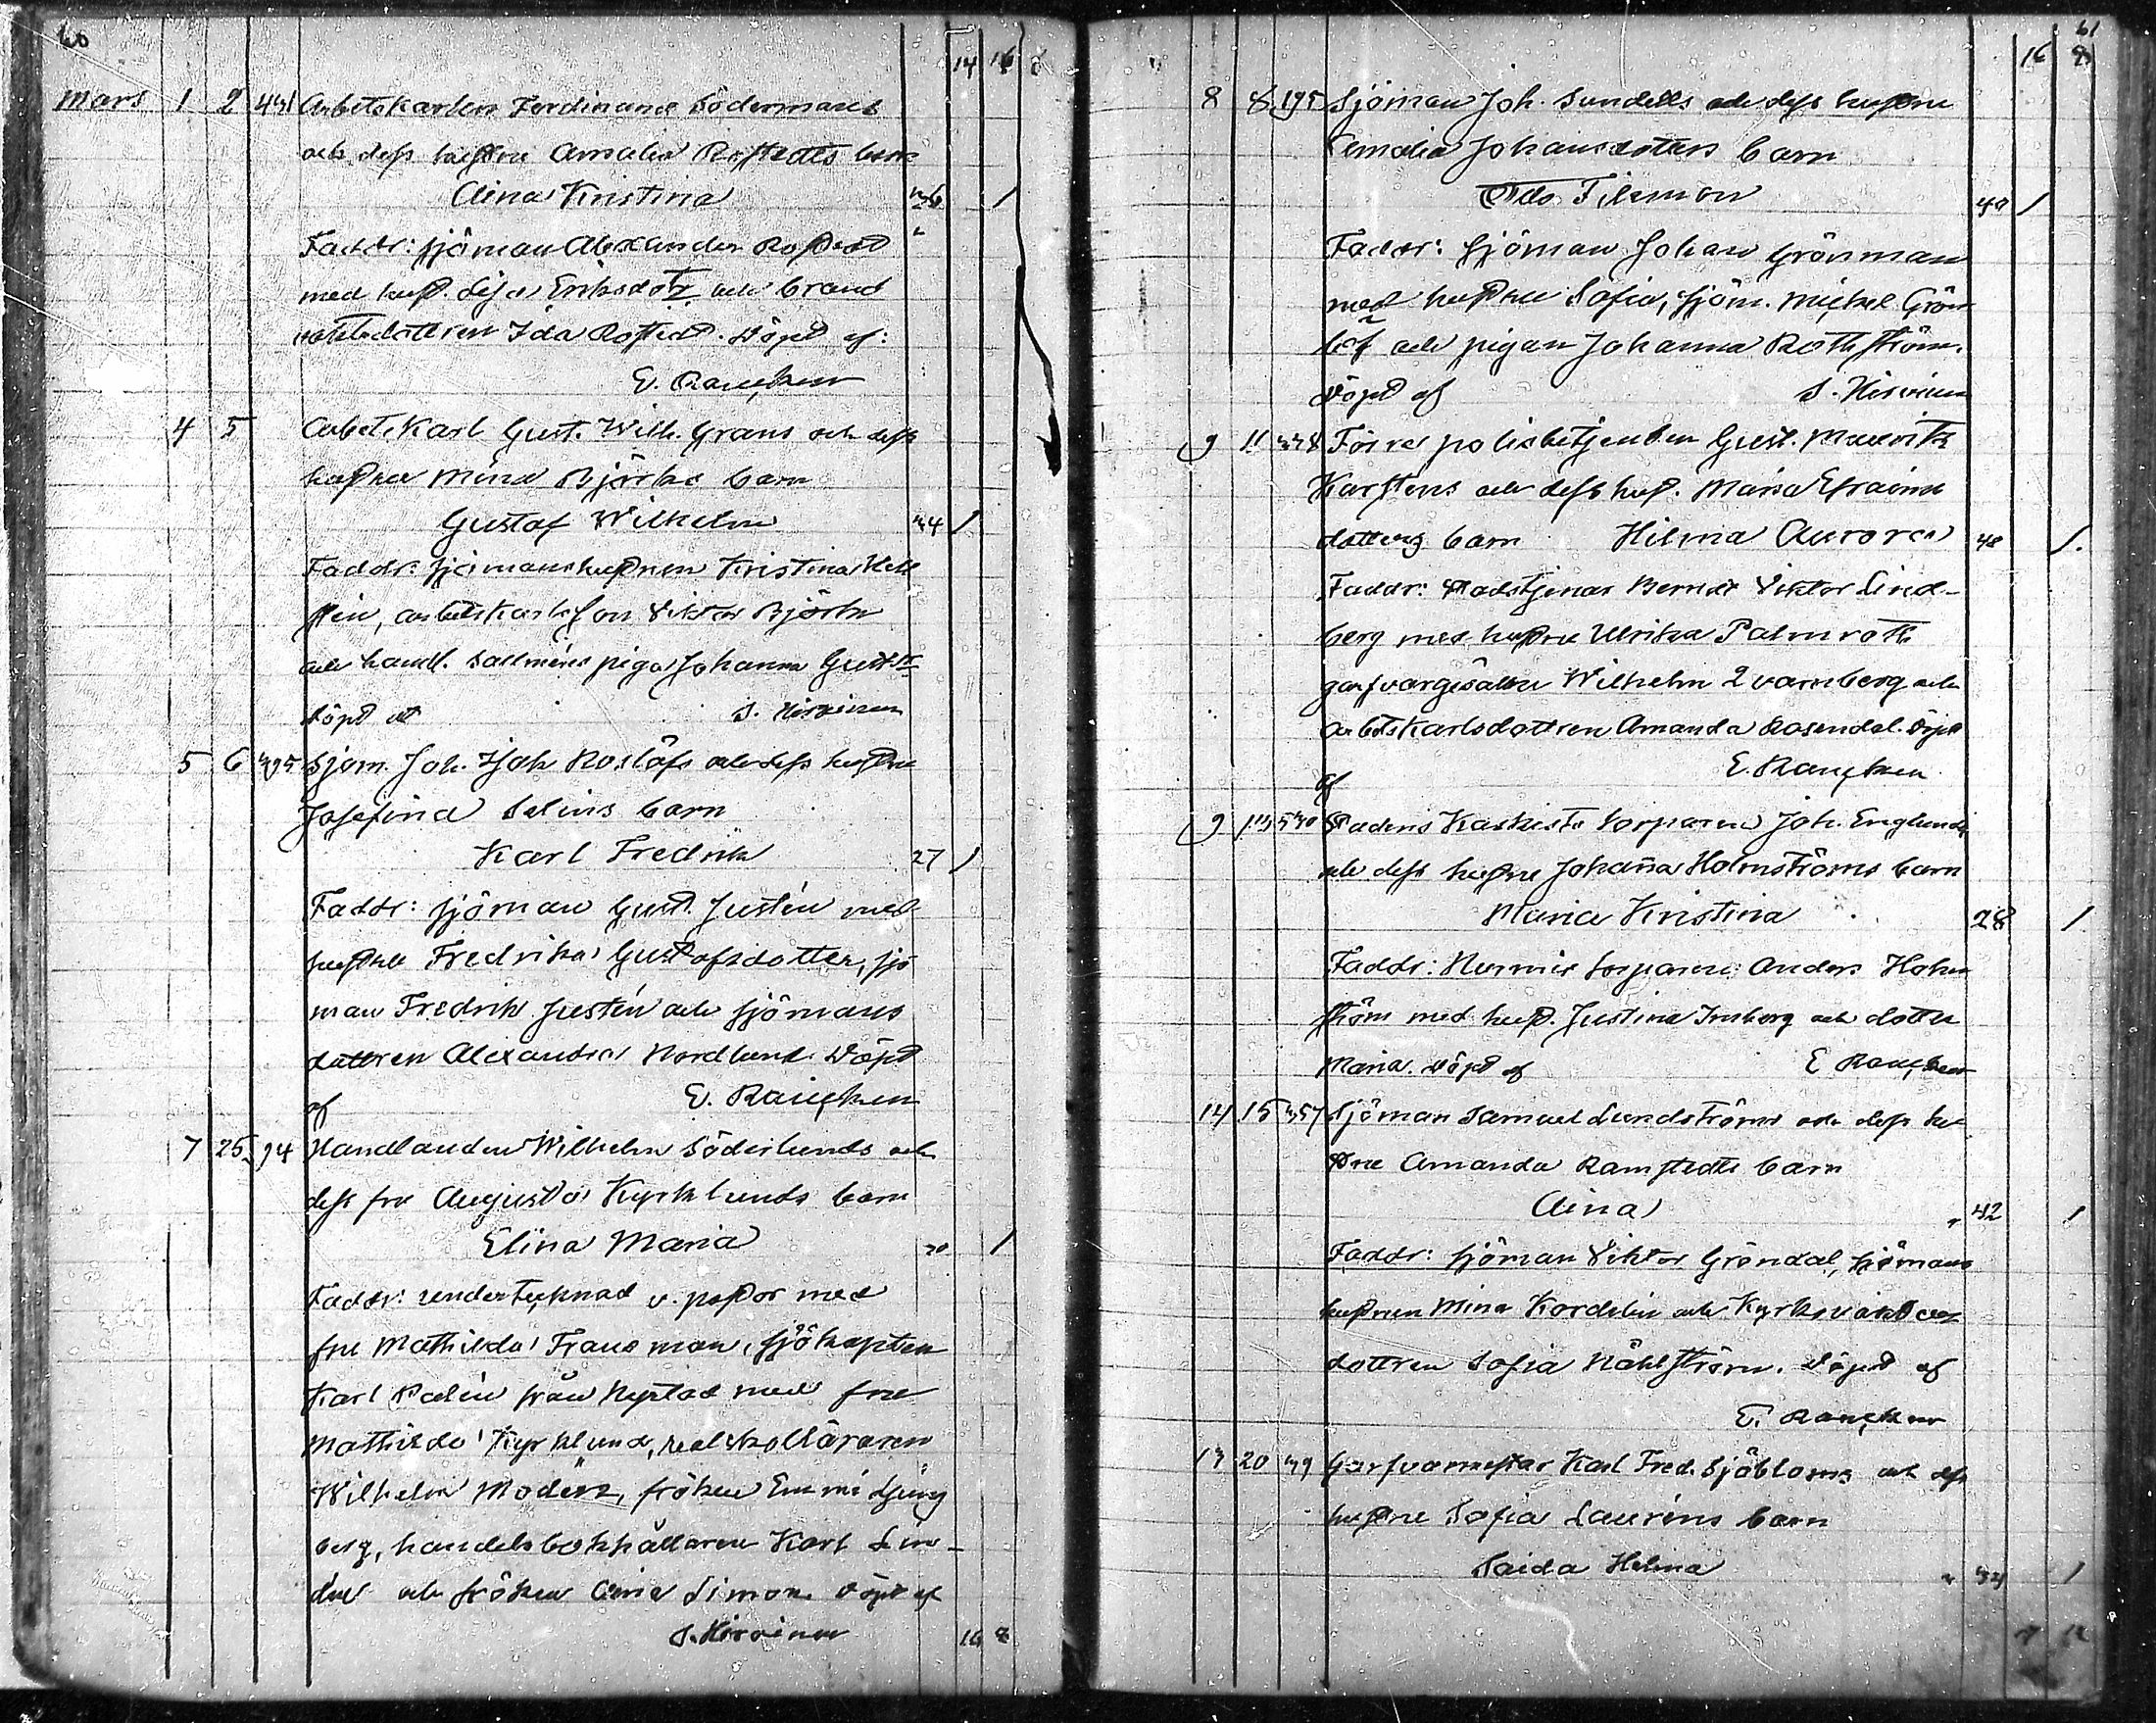 60
14 16 8
Mars 1 2 431 Arbetskarlen Ferdinand Södermans
och dess hustru Amalia Rostedts barn
Aina Kristina 36 1
Faddr: sjöman Alexander Rostedt
med hust. Lisa Eriksdotr och brand
vaktsdottren Ida Rostedt. Döpt af:
E. Rancken
4 5 Arbetskarl Gust. Wilh. Grans och dess
hustru Mina Björks barn
Gustaf Wilhelm 34 1
Faddr: sjömanshustrun Kristina Hell
sten, arbetskarlsson Viktor Björk
och handl. Sallméns piga Johanna Gust.dr
döpt af S. Hirvinen
5 6 395 Sjöm. Joh. Isak Roslöfs och dess hustru
Josefina Selins barn
Karl Fredrik 27 1
Faddr: sjöman Gust. Justén med
hustru Fredrika Gustafsdotter, sjö
man Fredrik Justén och sjömans
dottren Alexandra Nordlund. Döpt
af E. Rancken
7 25 94 Handlanden Wilhelm Söderlunds och
dess fru Augusta Kyrklunds barn
Elina Maria 30 1
Faddr: undertecknad v. pastor med
fru Mathilda Fransman, sjökapten
Karl Palén från Nystad med fru
Mathilda Kyrklund, realskolläraren
Wilhelm Modén, fröken Emmi Ljung
berg, handelsbokhållaren Karl Lin-
dal och fröken Simon. Döpt af
S. Hirvinen 16 8
61
16 8
8 8 195 Sjöman Joh. Sundells och dess hustru
Amalia Johansdotters barn
Filemon 40 1
Faddr: sjöman Johan Grönman
med hustru Sofia, sjöm. Mickel Grön
löf och pigan Johanna Rothström.
Döpt af S. Hirvinen
9 11 338 Förra polisbetjenten Gust. Mauritz
Karstens och dess hust. Maria Efraims
dotters barn Hilma Aurora 48 1.
Faddr: stadstjenar Berndt Viktor Lind-
berg med hustru Ulrika Palmroth
garfvaregesällen Wilhelm Qvarnberg och
arbetskarlsdottren Amanda Rosendal. Döpt
af E. Rancken
9 13 530 Stadens Kaskisto torparen Joh. Englunds
och dess hustru Johanna Holmströms barn
Maria Kristina 28 1.
Faddr: Nurmis torparen Anders Holm
ström med hust. Justina och dotter
Maria. Döpt af E Rancken
14 15 357 Sjöman Samuel Lundströms och dess hu
stru Amanda Ramstedts barn
Aina 42 1
Faddr: sjöman Viktor Gröndal, sjömans
hustrun Mina Kordelin och Kyrkovaktars
dottren Sofia Nählström. Döpt af
E. Rancken
13 20 39 Garfvaremästar Karl Fred. Sjöbloms och dess
hustru Sofia Lauréns barn
Saida Helena 34 1
7 12